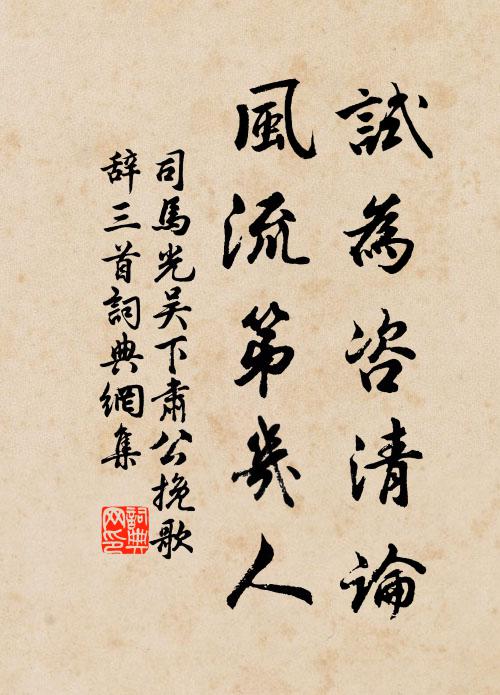 試為咨清論
風流第幾人
司馬光吳下肅公挽歌
辞三首詞典網集
詞典
网印